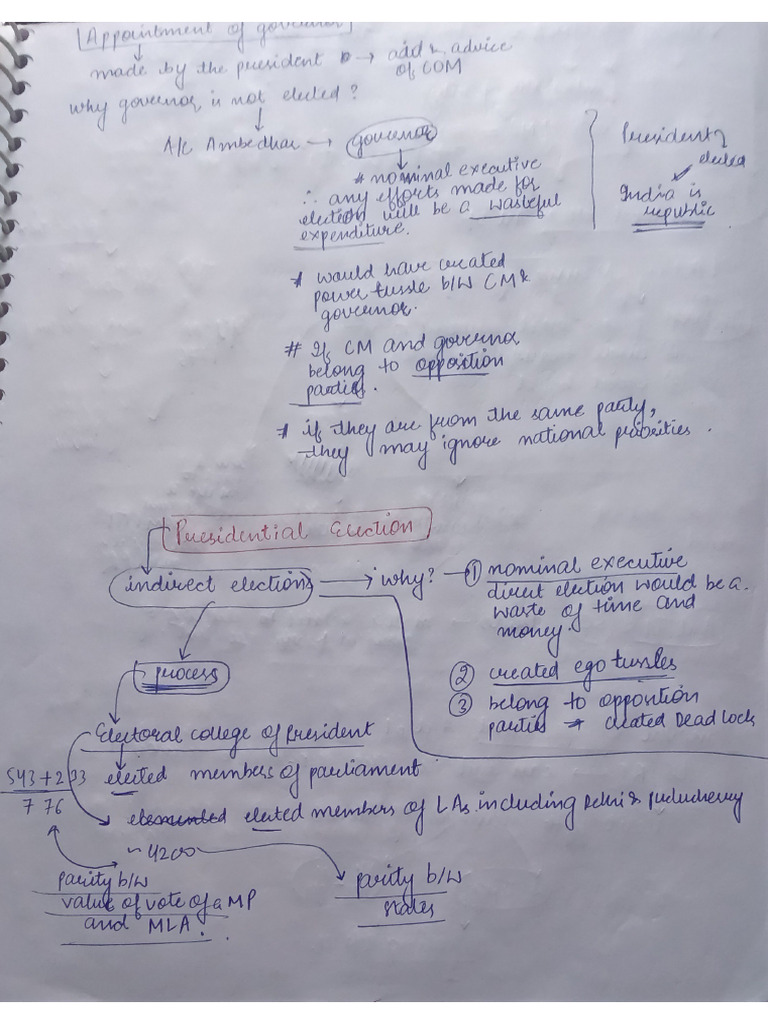 Appointment of governor
made by the president → aid & advice
of COM
why governor is not elected?
A/c Ambedkar → governor
# nominal executive
∴ any efforts made for
election will be a wasteful
expenditure.
President
elected
India is
republic
* would have created
power tussle b/w CM &
governor.
# If CM and governor
belong to opposition
parties.
* if they are from the same party,
they may ignore national priorities.
Presidential Election
indirect elections → why? → ① nominal executive
direct election would be a
waste of time and
money.
② created ego tussles
③ belong to opposition
parties → created Dead lock
process
Electoral college of President
543 + 233 elected members of parliament
776
elected members of LAs including Delhi & puducherry
~4200
parity b/w
value of vote of a MP
and MLA.
parity b/w
states